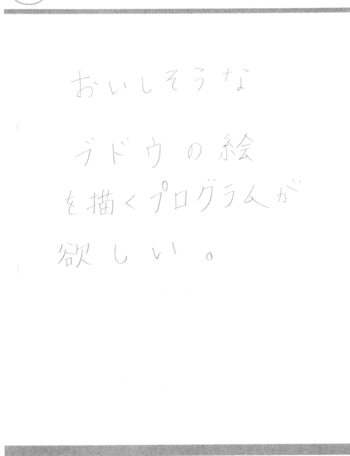 おいしそうな
ブドウの絵
を描くプログラムが
欲しい。